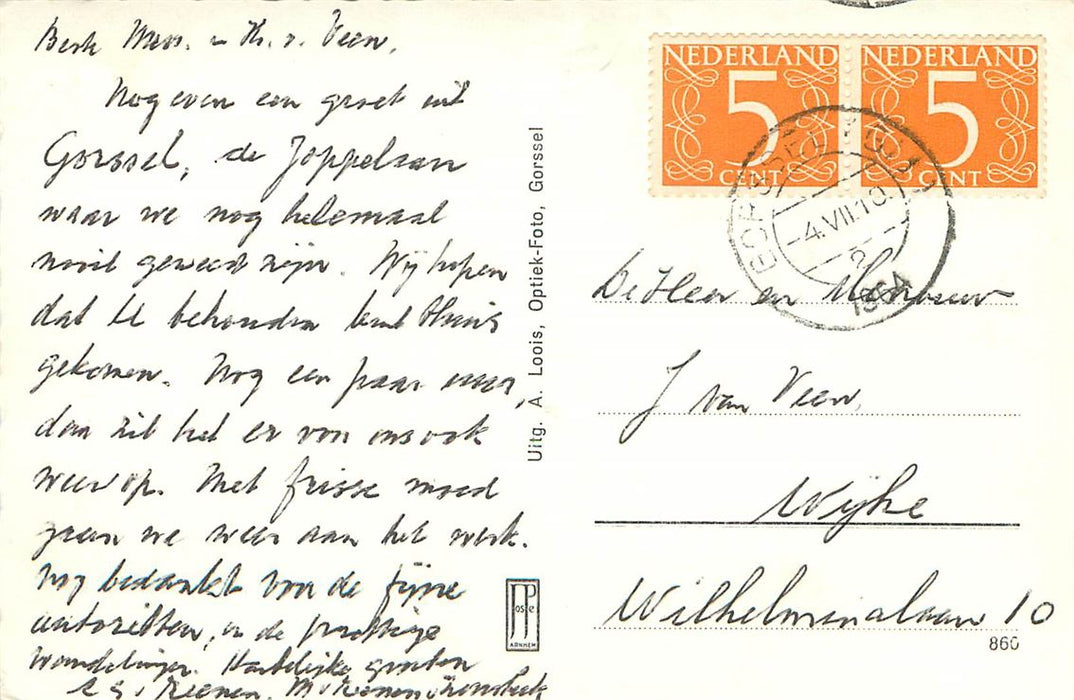 Nog even een groet uit
Gorssel, de Joppelaan
waar we nog helemaal
nooit geweest zijn. Wij hopen
dat U behouden bent thuis
gekomen. Nog een paar uur,
dan zit het er van ons ook
weer op. Met frisse moed
gaan we weer aan het werk.
Nog bedankt voor de fijne
autoritten, en de prachtige
wandelingen. Hartelijke groeten
Uitg. A. Loois, Optiek-Foto, Gorssel
JosPe
ARNHEM
NEDERLAND
5
CENT
NEDERLAND
5
CENT
-4.VII.10
1964
De Heer en Mevrouw
J van Veen,
Wijhe
Wilhelminalaan 10
860